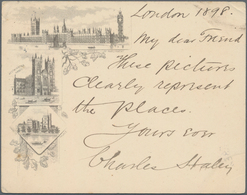 London 1898.
My dear Friend
These pictures
clearly represent
the places.
Yours ever
Charles Staley